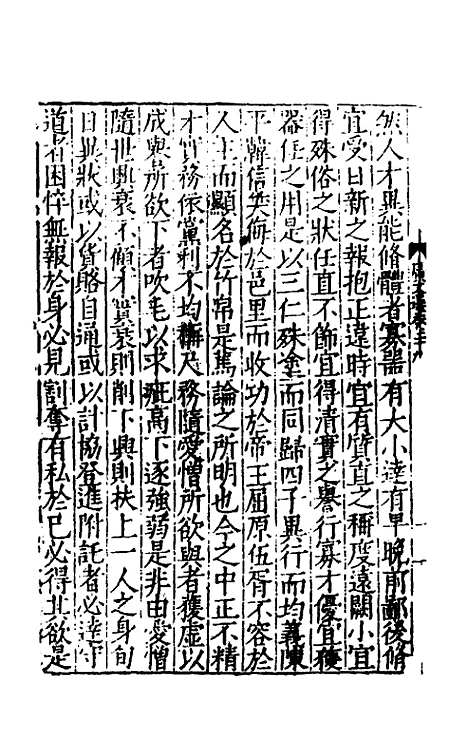 然人才異能備體者寡器有大小達有早晚前鄙後脩
宜受日新之報抱正違時宜有質直之稱度遠闕小宜
得殊俗之狀任直不飾宜得清實之譽行寡才優宜獲
器任之用是以三仁殊塗而同歸四子異行而均義陳
平韓信笑侮於邑里而收功於帝王屈原伍胥不容於
人主而顯名於竹帛是篤論之所明也今之中正不精
才實務依黨利不均稱尺務隨愛憎所欲與者獲虛以
成輿所欲下者吹毛以求疵高下逐強弱是非由愛憎
隨世興衰不顧才實衰則削下興則扶上一人之身旬
日異狀或以貨賂自通或以計協登進附託者必達守
道者困悴無報於身必見割奪有私於己必得其欲是